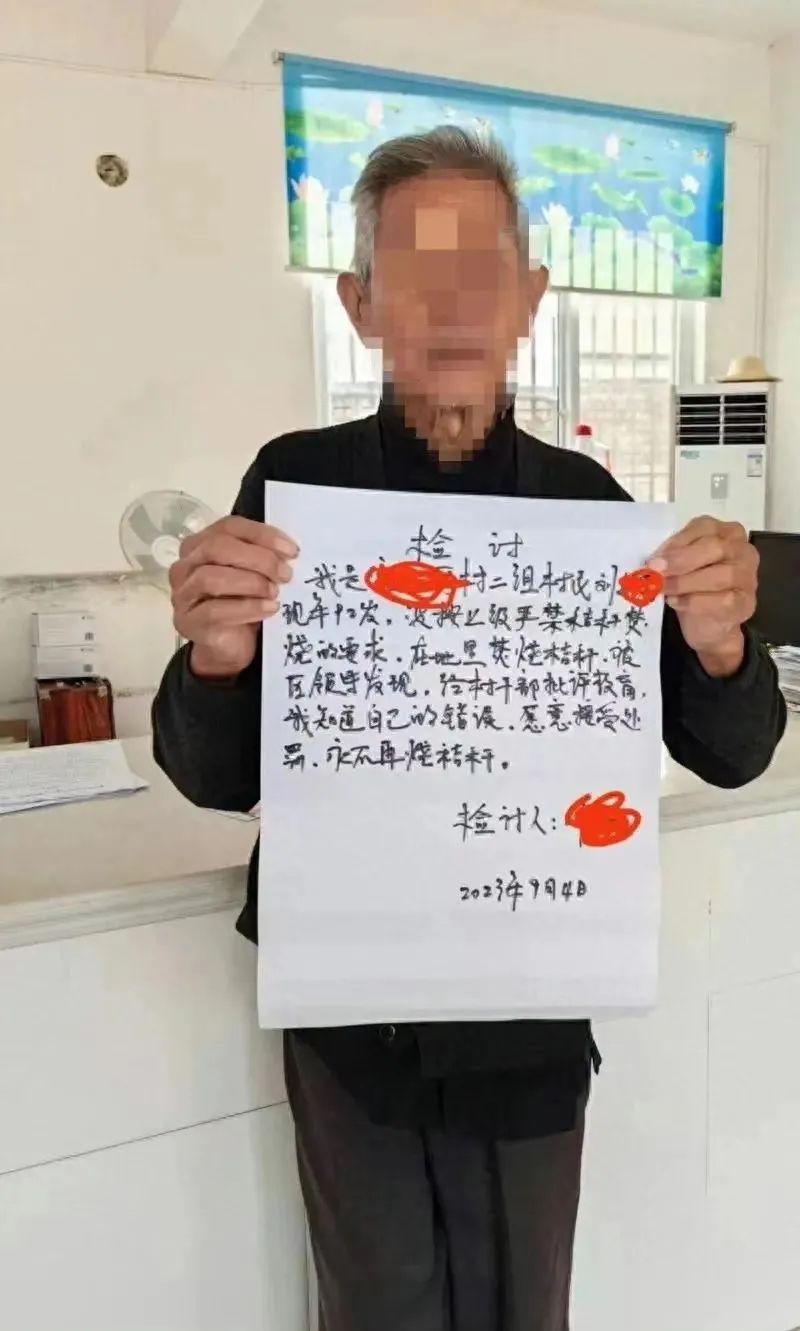 检讨
我是 村二组村民刘
现年92岁，没按上级严禁秸秆焚
烧的要求，在地里焚烧秸秆，被
区领导发现，给村干部批评教育，
我知道自己的错误，愿意接受处
罚，永不再烧秸秆。
检讨人：
2023年9月4日